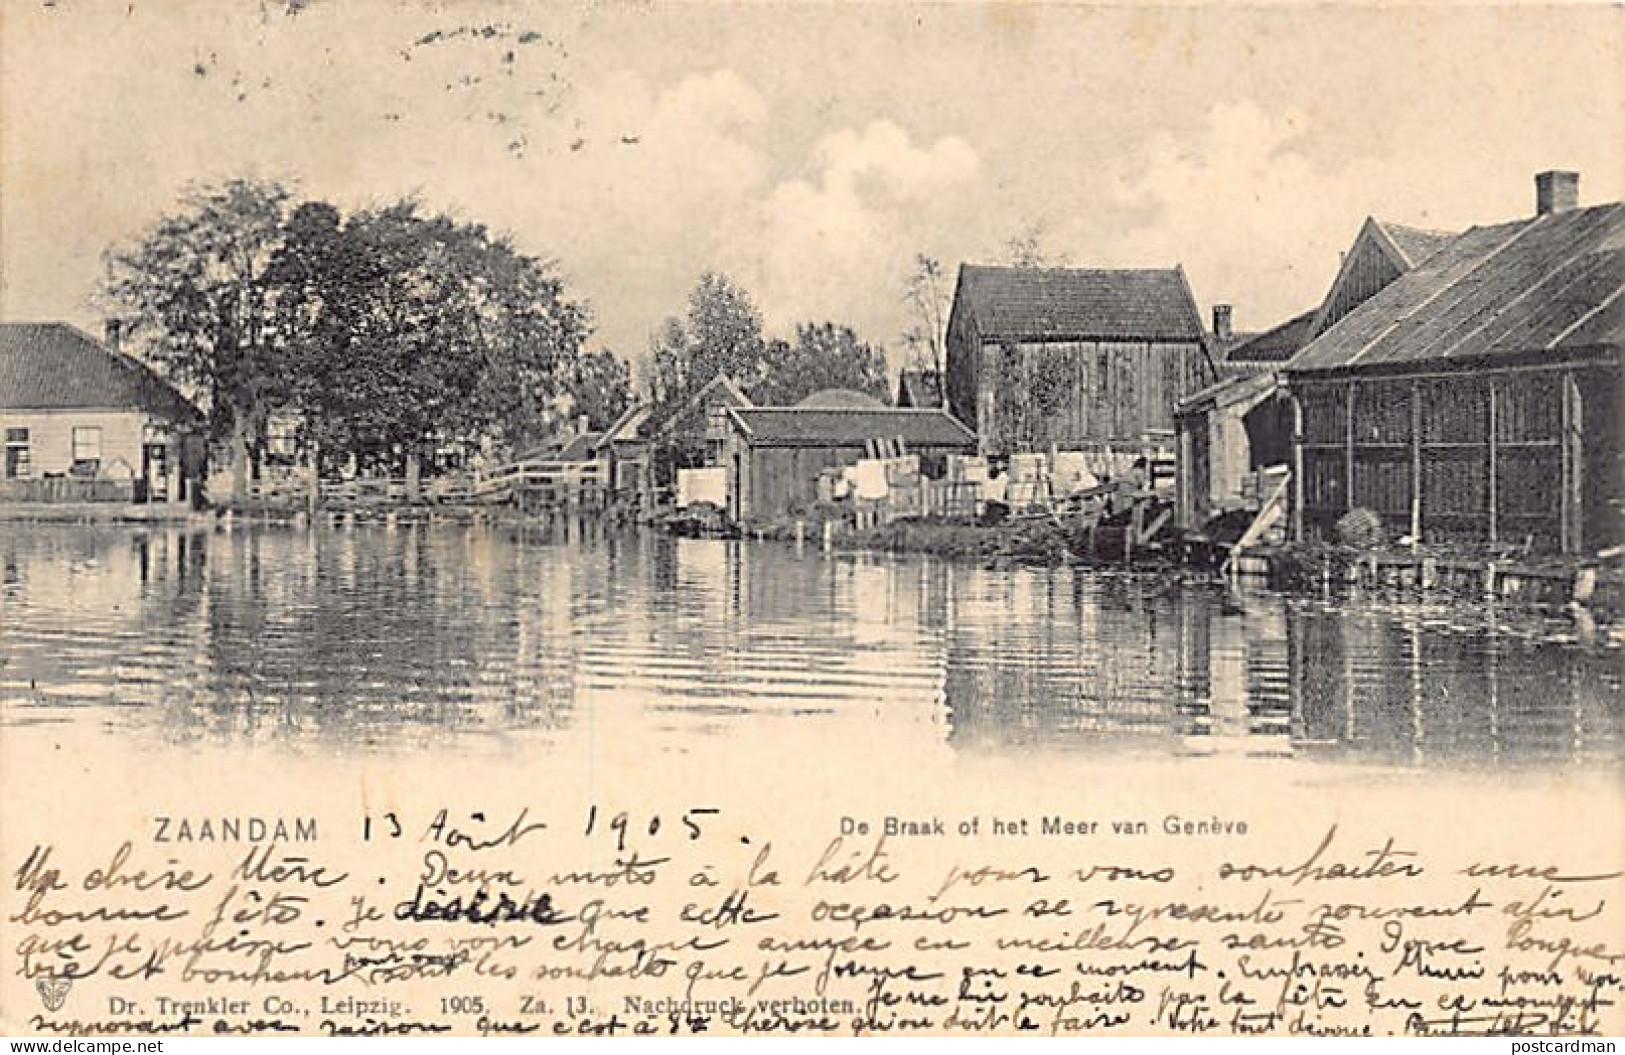 ZAANDAM 13 Août 1905. De Braak of het Meer van Genève
Ma chère Mère. Deux mots à la hâte pour vous souhaiter une
bonne fête. Je désire que cette occasion se représente souvent afin
que je puisse vous voir chaque année en meilleure santé. Donc longue
vie et bonheur pour vous sont les souhaits que je forme en ce moment. Embrassez Mimi pour moi.
Je ne lui souhaite pas la fête en ce moment
Dr. Trenkler Co., Leipzig. 1905. Za. 13. Nachdruck verboten.
supposant avec raison que c'est à Ste Thérèse qu'on doit le faire. Votre tout dévoué.
postcardman
www.delcampe.net